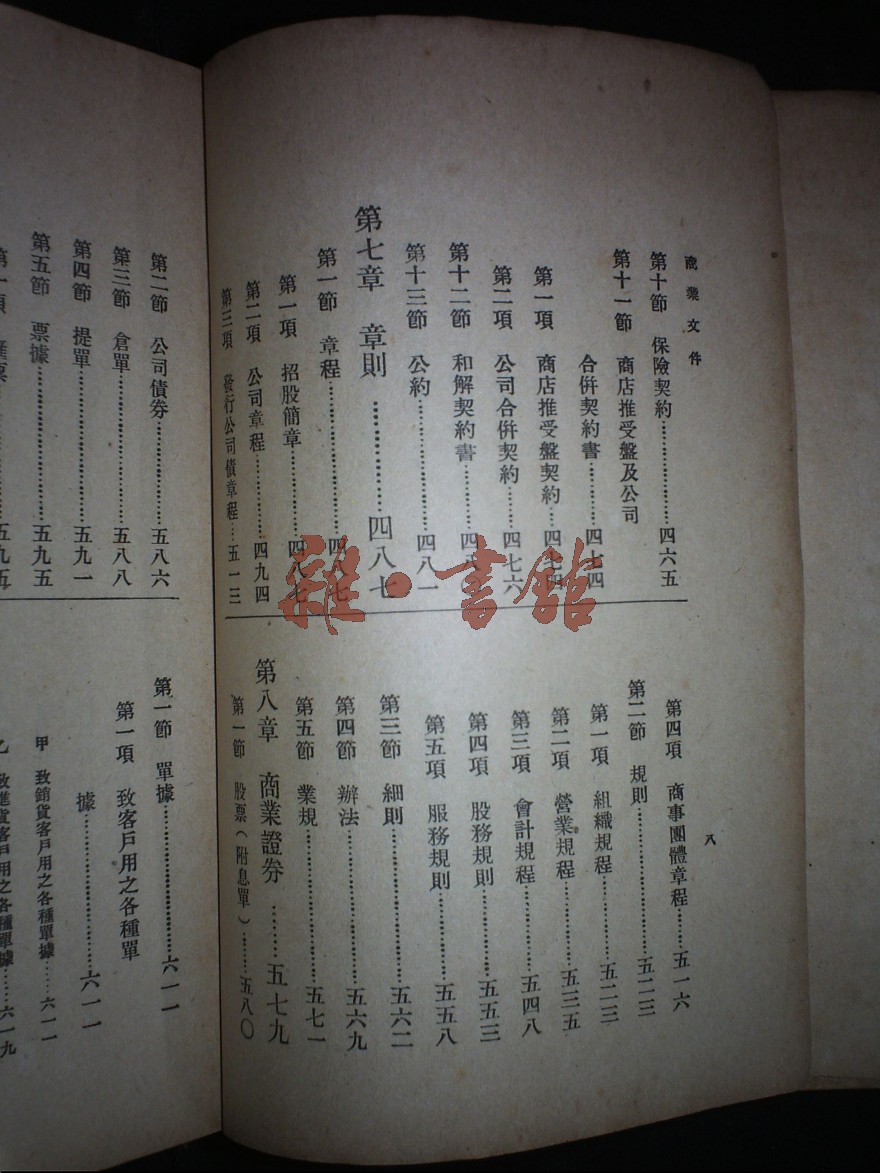 商業文件
第十節 保險契約………四六五
第十一節 商店推受盤及公司
合併契約書………四七四
第一項 商店推受盤契約…四七四
第二項 公司合併契約………四七六
第十二節 和解契約書………四八
第十三節 公約………四八一
第七章 章則………四八七
第一節 章程………四八七
第一項 招股簡章………四八七
第二項 公司章程………四九四
第三項 發行公司債章程…五一三
第四項 商事團體章程……五一六
第二節 規則………五二三
第一項 組織規程………五二三
第二項 營業規程………五三五
第三項 會計規程………五四八
第四項 股務規則………五五三
第五項 服務規則………五五八
第三節 細則………五六二
第四節 辦法………五六九
第五節 業規………五七一
第八章 商業證券……五七九
第一節 股票(附息單)……五八〇
八
第二節 公司債券………五八六
第三節 倉單………五八八
第四節 提單………五九一
第五節 票據………五九五
第一項………五九五
第一節 單據………六一一
第一項 致客戶用之各種單
據………六一一
甲 致銷貨客戶用之各種單據……六一一
乙 致進貨客戶用之各種單據……六一九
雜·書館